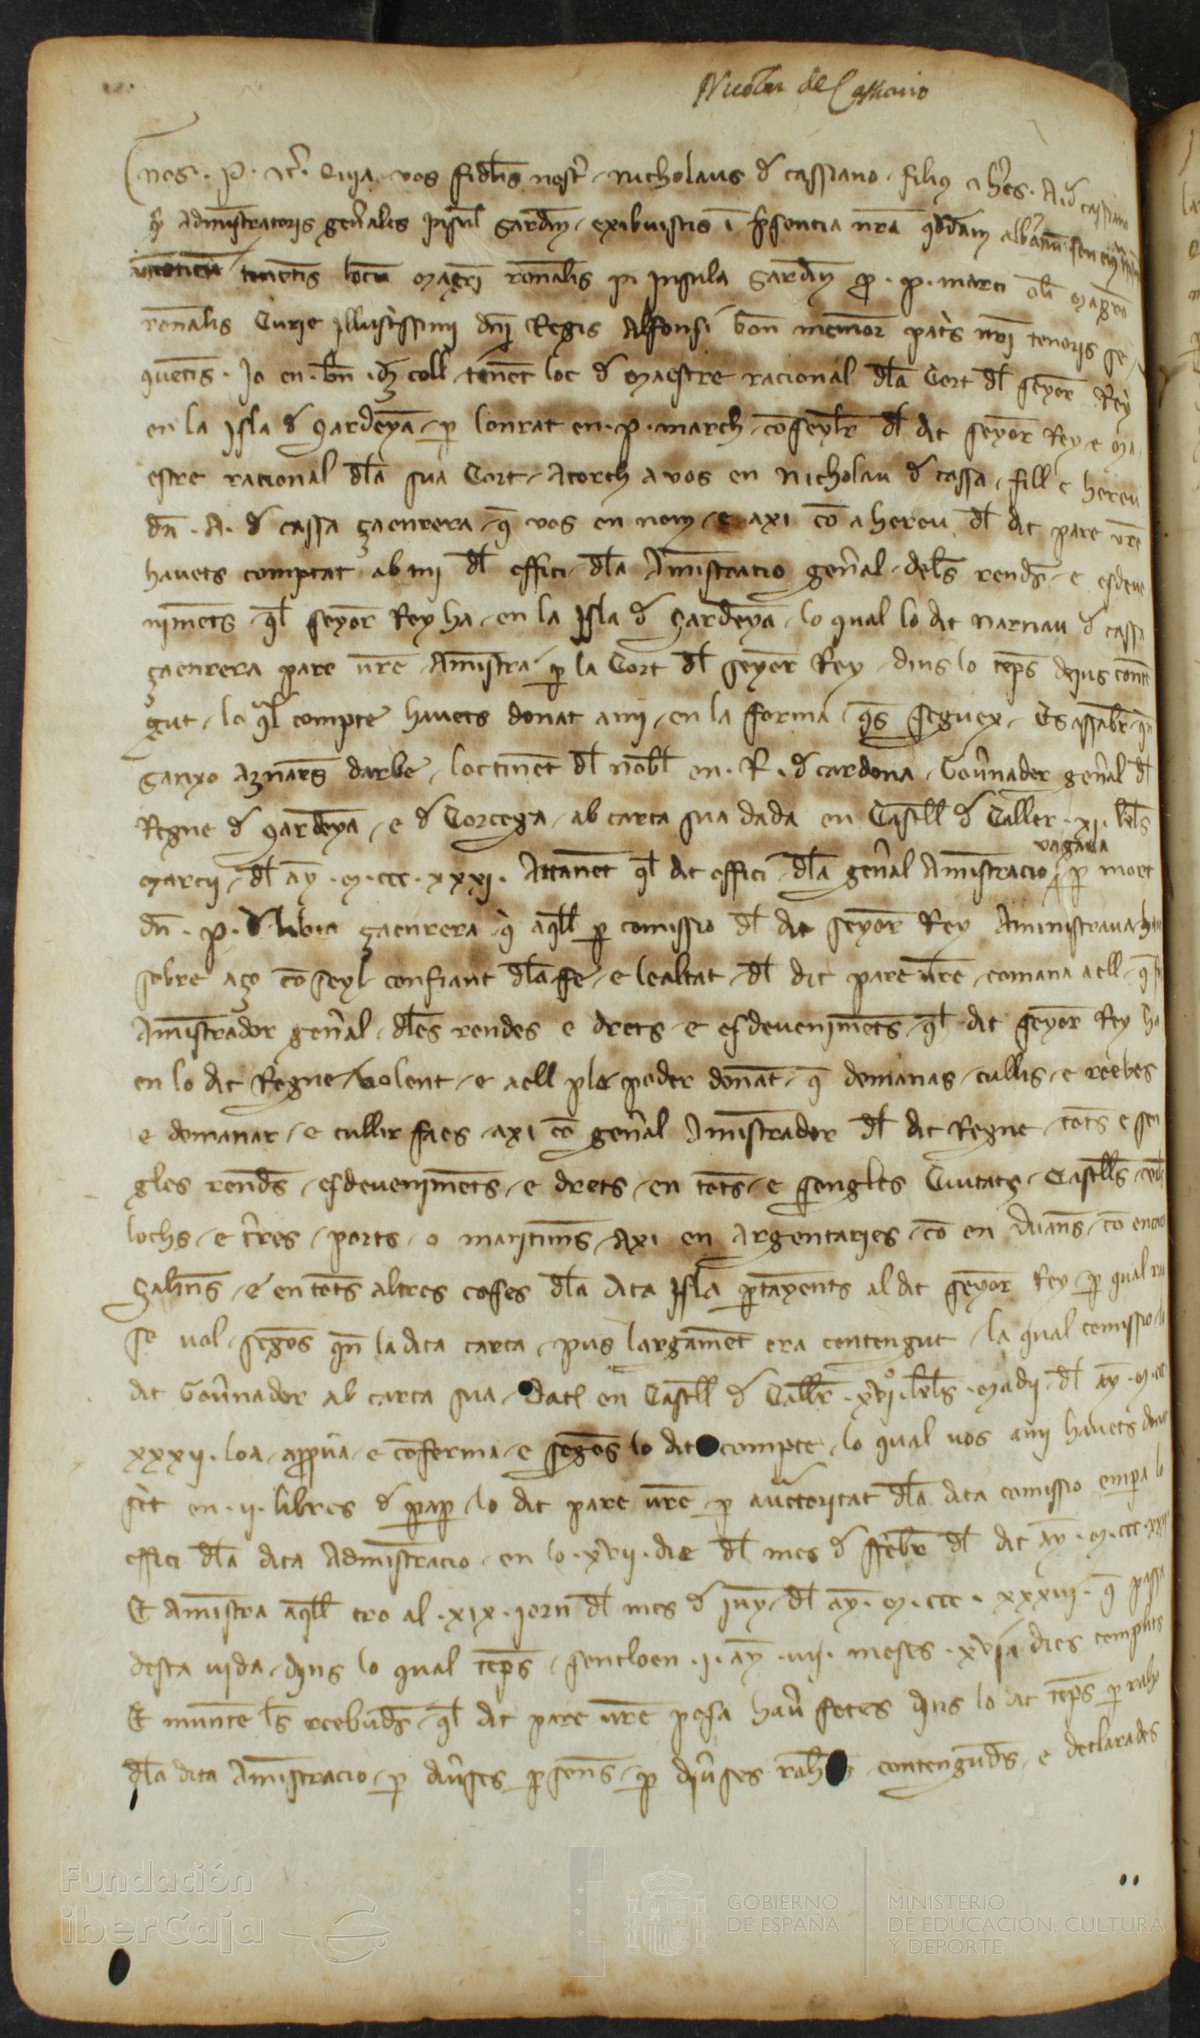 Nicolau de Cassiano
Nos . P. etc. Quia vos fidelis noster Nicholaus d cassiano filius et heres . A. d cassiano
administratoris generales Insul Sardin exibuistis i presencia nra quodam albaranum seu
tenentis locu Magri Ronalis in Insula Sardin pro . P. Marci olim Magri
Ronalis Curie Illustissimi dni Regis Alfonsi bon memor patis nri tenoris se
quentis . Jo en . Bn . coll tenet loc d Maestre racional dla Cort dl seyor Rey
en la isla d Sardeya p lonrat en . P. March conseyler dl dit seyor Rey e Ma
estre racional dla sua Cort Atorch a vos en Nicholau d cassa fill e hereu
dn . A. d cassa çaenrera q vos en nom e axi co a hereu dl dit pare vre
havets comptat ab mi dl offici dla Aministracio general dels rends e esdeve
niments ql seyor Rey ha en la Isla d Sardeya lo qual lo dit Narnau d cassa
çaenrera pare vre Aministra p la Cort dl seyor Rey dins lo temps dejus conte
gut lo ql compte havets donat a mi en la forma qs seguex Es assaber q
Sanxo Aznars darbe loctinet dl nobl en . R. d cardona Governador general dl
Regne d Sardeya e d Corcega ab carta sua dada en Castell d Caller . xi. kls
Marcii dl ay . M. ccc. xxxi. Attanet ql dit offici dla general Aministracio vagava p mort
dn . P. d libia çaenrera q aqll p comissio dl dit seyor Rey Aministrava
sobre aço conseyl confiant dla ffe e lealtat dl dit pare vre comana a ell q fos
Aministrador general dles rendes e drets e esdeveniments ql dit seyor Rey ha
en lo dit Regne volent e a ell ple poder donat q demanas cullis e reebes
e demanar e cullir faes axi co general Aministrador dl dit Regne tots e sen
gles rends esdeveniments e drets en tots e sengles Ciutats Castells viles
lochs e terres ports o maritims Axi en Argentaries co en duans co en
Salins e en tots altres coses dla dita Isla ptayents al dit seyor Rey p qual
se vol segons qn la dita carta pus largamet era contengut la qual comissio
dit Governador ab carta sua Dat en Castell d Caller . xvi. kls . Madii dl ay . M. ccc
xxxii. loa appva e conferma e segons lo dit compte lo qual vos a mi havets donat
scit en . ii. libres d paper lo dit pare vre p auctoritat dla dita comissio empa lo
offici dla dita Administracio en lo . xvii. die dl mes d ffebr dl dit ay . M. ccc. xxxi
Et Aministra aqll tro al . xix. jorn dl mes d juny dl ay . M. ccc. xxxiii. q passa
desta vida dins lo qual temps sencloen . i. ay . iiii. meses . dies complits
Et munte ls reebuds ql dit pare vre posa haver fetes dins lo dit temps p raho
dla dita Aministracio p diverses psones p diverses rahons contenguds e declarades
Fundación
iberCaja
GOBIERNO
DE ESPAÑA
MINISTERIO
DE EDUCACIÓN, CULTURA
Y DEPORTE